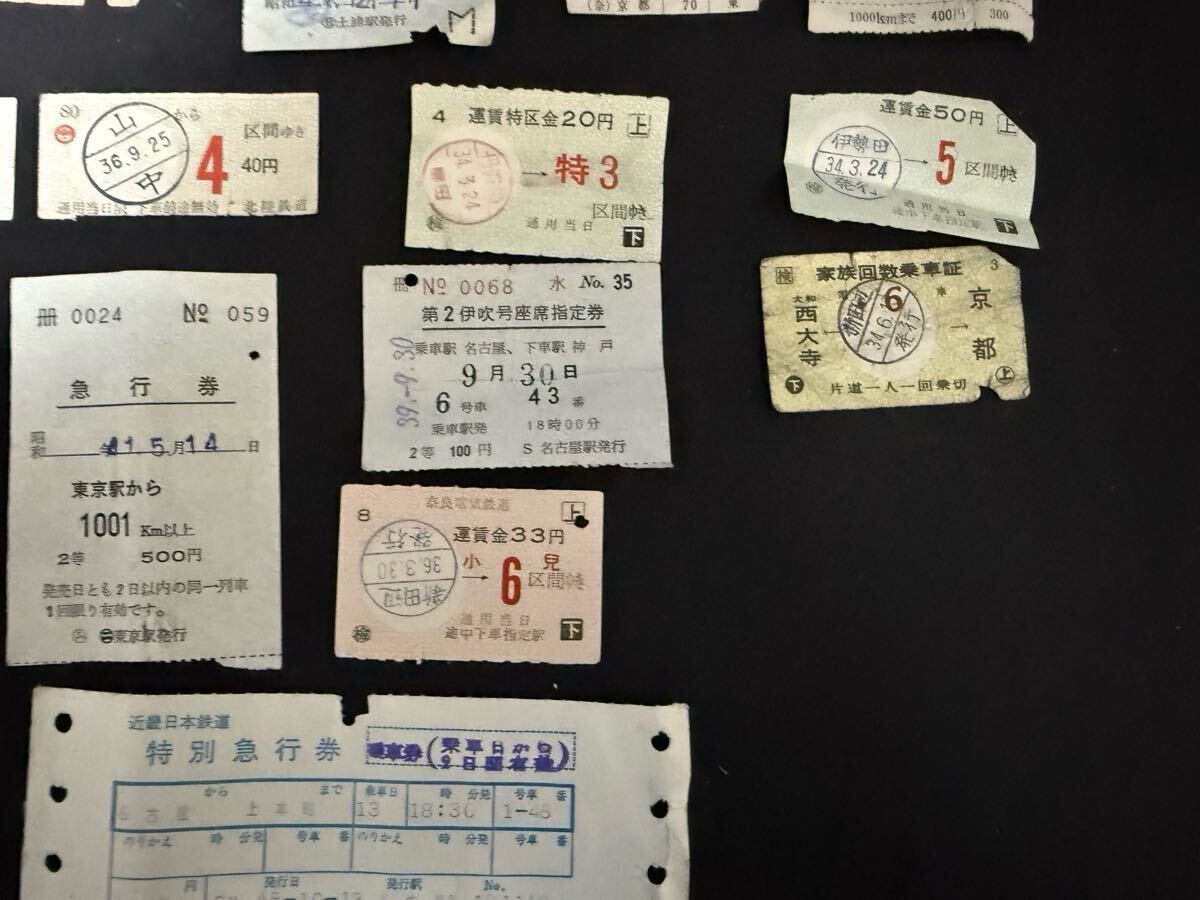 土浦駅発行
京都 70 東
1000kmまで 400円 300
80
山
から
36.9.25
中
4
区間ゆき
40円
北陸鉄道
4 運賃特区金20円 上
34.3.24
→ 特3
区間ゆき
通用当日
検
下
運賃金50円 上
伊勢田
34.3.24
発行
→ 5 区間ゆき
検
通用当日
下
冊 0024 № 059
急行券
昭和 41年5月14日
東京駅から
1001 Km以上
2等 500円
発売日とも2日以内の同一列車
1回限り有効です。
東京駅発行
冊 № 0068 水 No. 35
第2伊吹号座席指定券
乗車駅 名古屋、下車駅 神戸
39.-9.30
9月30日
6号車 43番
乗車駅発 18時00分
2等 100円 S 名古屋駅発行
検 家族回数乗車証 3
大和
西大寺
6
34.6.
発行
→
京都
下 片道一人一回乗切 上
奈良電気鉄道
8 運賃金33円 上
発行
36.3.30
新田辺
小児
→ 6 区間ゆき
通用当日
検 途中下車指定駅 下
近畿日本鉄道
特別急行券
乗車券(乗車日から
から まで 乗車日 時 分発 号車 番
名古屋 13 18:30 1-48
のりかえ 時 分発 号車 番 のりかえ 時 分発 号車 番
円 発行日 発行駅 No.